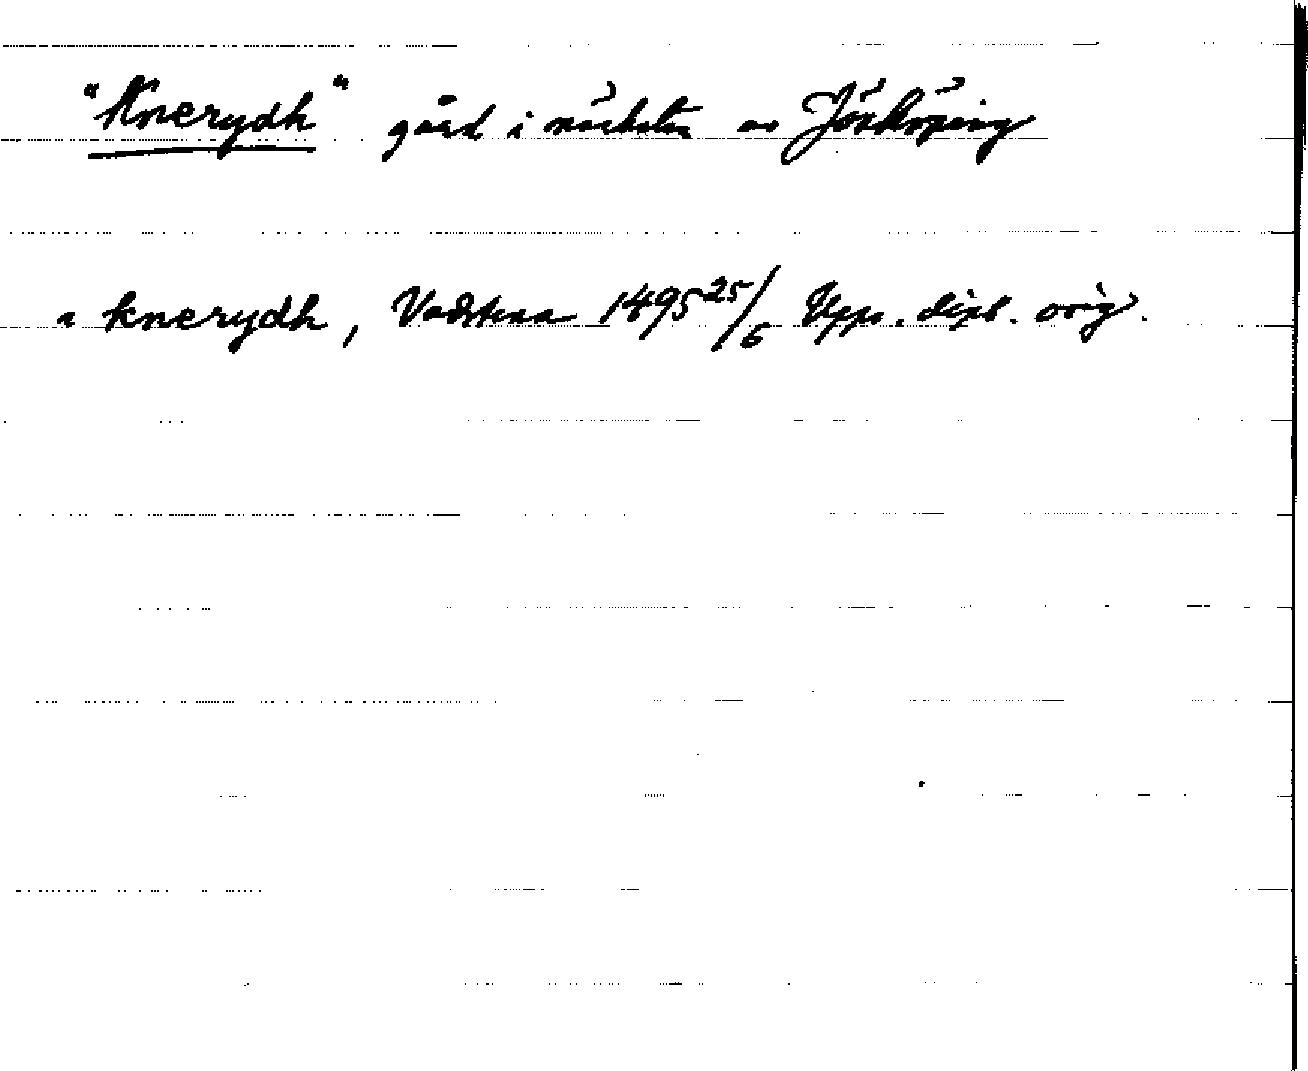 "Knerydh" gård i närheten av Jönköping
a knerydh, Vadstena 1495 25/6 Upps. dipl. orig.